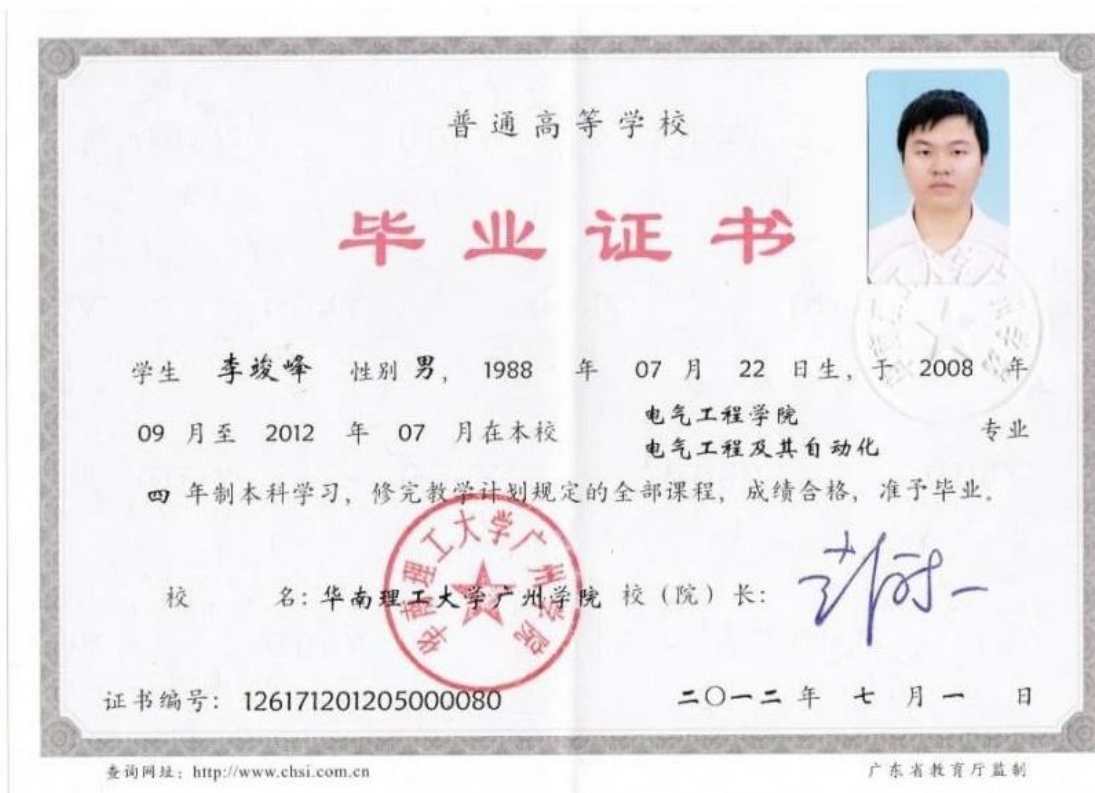 普通高等学校
毕业证书
学生 李竣峰 性别 男, 1988 年 07 月 22 日生, 于 2008 年
09 月至 2012 年 07 月在本校 电气工程学院 电气工程及其自动化 专业
四 年制本科学习, 修完教学计划规定的全部课程, 成绩合格, 准予毕业。
华南理工大学广州学院
校 名: 华南理工大学广州学院 校（院）长:
证书编号: 126171201205000080 二〇一二 年 七 月 一 日
查询网址: http://www.chsi.com.cn 广东省教育厅监制